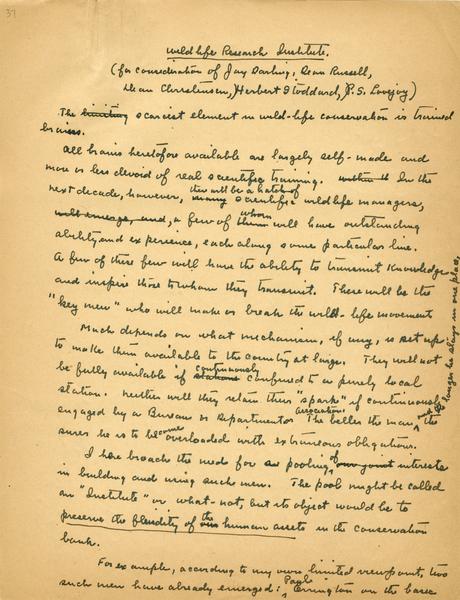 39
Wild life Research Institute.
(for consideration of Jay Darling, Dean Russell,
Dean Christensen, Herbert Stoddard, P.S. Lovejoy)
The limiting scarcest element in wild-life conservation is trained
brains.
All brains heretofore available are largely self-made and
more or less devoid of real scientific training. within th In the
next decade, however, there will be a hatch of many scientific wildlife managers,
will emerge, and, a few of them whom will have outstanding
ability and experience, each along some particular line.
A few of these few will have the ability to transmit knowledge
and inspire those to whom they transmit. These will be the
"key men" who will make or break the wild-life movement
Much depends on what mechanism, if any, is set up
to make them available to the country at large. They will not
be fully available if stationed continuously confined to a purely local
station. Neither will they retain their "spark" if continuously
engaged by a Bureau or Department or association. The better the man, and the longer he stays in one place, the
surer he is to become overloaded with extraneous obligations.
I here broach the need for a pooling of our joint interests
in building and using such men. The pool might be called
an "Institute" or what-not, but its object would be to
preserve the fluidity of the human assets in the conservation
bank.
For example, according to my own limited viewpoint, two
such men have already emerged: Paul Errington on the basic